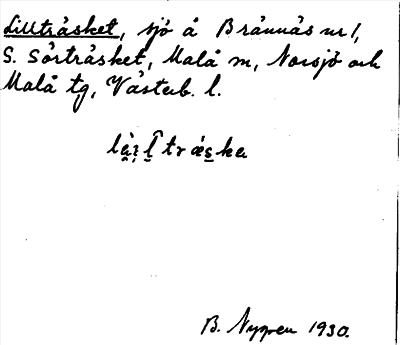 Lillträsket, sjö å Brännäs nr 1,
S. Sörträsket, Malå sn, Norsjö och
Malå tg, Västerb. l.
B. Nygren 1930.